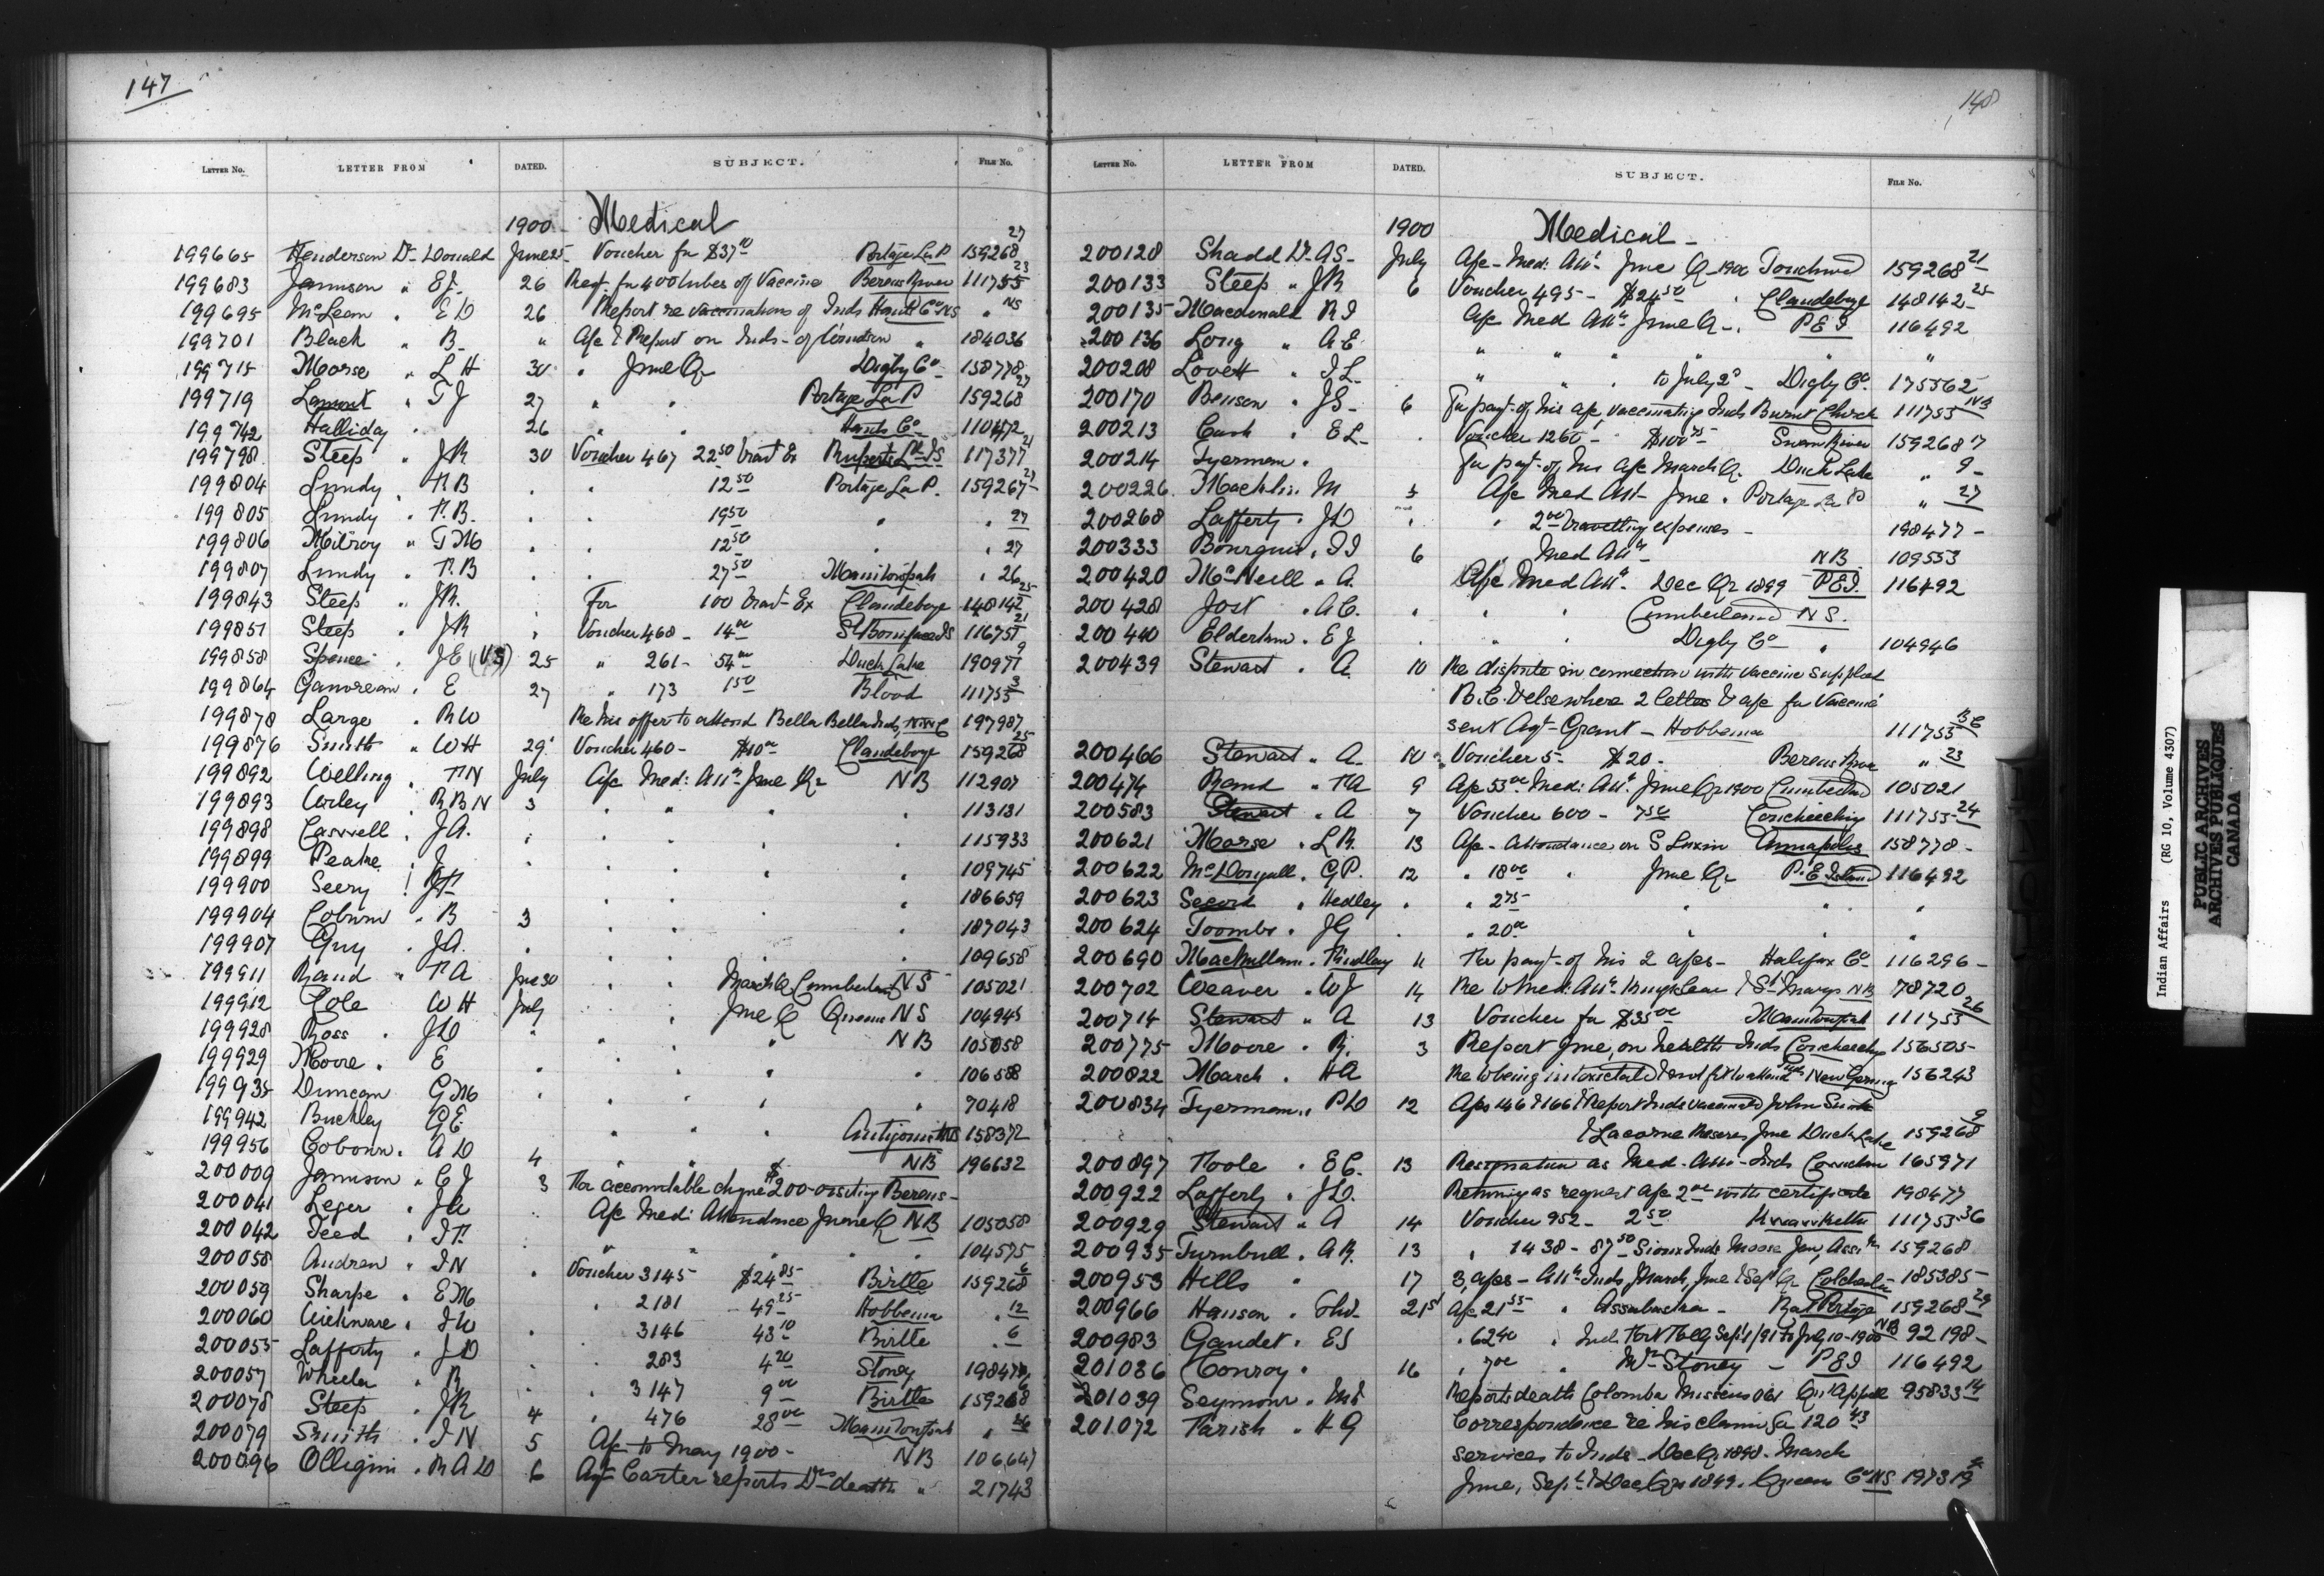 147
LETTER NO. LETTER FROM DATED. SUBJECT. FILE NO.
1900 Medical
199665 Henderson Dr Donald June 25 Voucher for $37 10 Portage La P 159268 27
199683 Jamison " E.J. 26 Req. for 400 tubes of Vaccine Berens River 111755 23
199695 McLean " E D 26 Report re vaccinations of Inds Hants Co NS " NS
199701 Black " B " A/c & Report on Inds - of " 184036
199715 Morse " L H 30 " June Qr Digby Co 158778
199719 Lamont " T J 27 " " Portage La P 159268 27
199742 Halliday " 26 " " Hants Co 110472
199798 Steep " J R 30 Voucher 467 22 50 Ex 117377 21
199804 Lundy " P.B 12 50 Portage La P. 159267 27
199805 Lundy " P.B. 19 50 " " 27
199806 Milroy " T M 12 50 " 27
199807 Lundy " P.B 27 50 Manitowpah " 26
199843 Steep " J R. For 100 Ex Clandeboye 148142 25
199851 Steep " J R Voucher 468 - 14 00 St Boniface 116751 21
199858 Spence " J E (VS) 25 " 261 - 54 00 Duck Lake 190971 9
199864 Gauvreau " E 27 " 173 1 50 Blood 111755 3
199878 Large " R W Re his offer to attend Bella Bella Inds, 197987
199876 Smith " W H 29 Voucher 460 - $10 00 Clandeboye 159268 25
199892 Welling " P N July A/c Med: Att. June Qr NB 112907
199893 " R B N 3 " " " " 113131
199898 Caswell " J A. " " " " 115933
199899 Peake " J " " " " 109745
199900 Seery " J P. " " " " 186659
199904 Coburn " B 3 " " " " 187043
199907 Guy " J A. " " " " 109658
199911 Rand " P A June 30 " " March Q Cumberland N S 105021
199912 Cole W H July " June Q Queens N S 104945
199928 Ross " J D " " " N B 105058
199929 Moore " E " " " " 106588
199935 Duncan G M " " " " 70418
199942 Buckley G E. " " " Antigonish NS 158372
199956 Cobourn " A D 4 " " NB 196632
200009 Jamison " C J 3 For accountable cheque $200 - visiting Berens -
200041 Leger " J A A/c Med: Attendance June Q NB 105058
200042 Teed " J P. " " " " 104575
200058 Andrew " J N Voucher 3145 $24 85 Birtle 159268 6
200059 Sharpe " E M " 2181 49 25 Hobbema " 12
200060 Wickware " J W 3146 43 10 Birtle " 6
200055 Lafferty " J D 283 4 20 Stoney 198477
200057 Wheeler " R " 3147 9 00 Birtle 159268 6
200078 Steep " J R 4 " 476 28 00 Manitowpah " 26
200079 Smith " J N 5 A/c to May 1900 - NB 106,647
200096 " R A D 6 Agt Carter reports Drs death " 21743
148
LETTER NO. LETTER FROM DATED. SUBJECT. FILE NO.
1900 Medical
200128 Shadd Dr A S July A/c - Med: Att. June Q - 1900 Touchwood 159268 21
200133 Steep " J R 6 Voucher 495 - $24 50 Clandeboye 148142 25
200135 Macdonald R J A/c Med Att. June Q - P E I 116492
200136 Long " A E. " " " " "
200208 Lovett " J L. " " " to July 2d Digby Co. 175562
200170 Benson " J S - 6 For payt. of his a/c, vaccinating Inds Burnt Church 111755 NB
200213 Cash " E L - Voucher 1260 - $100 75 Swan River 159268 7
200214 Tyerman " For payt. of his a/c March Q. Duck Lake " 9
200226 Macklin M 5 A/c Med Att - June " Portage La P " 27
200268 Lafferty " J D " 2 00 travelling expenses - 198477 -
200333 Bourque " T J 6 " Med Att. NB 109553
200420 McNeill " A. A/c Med Att. Dec Qr 1899 P E I. 116492
200428 Jost " A C. " " Cumberland N S.
200440 Elderkin " E J " " Digby Co " 104946
200439 Stewart " A. 10 Re dispute in connection with vaccine supplied
B.C. & elsewhere 2 letters & a/c for Vaccine
sent Agt. Grant - Hobbema 111755 BC
200466 Stewart " A. 10 Voucher 5 - $20 - Berens River " 23
200474 Rand " P A 9 A/c 53 00 Med: Att. June Qr 1900 Cumberland 105021
200583 Stewart " A 7 Voucher 600 - 7 50 Couchiching 111755 24
200621 Morse " L R. 13 A/c - Attendance on S Luxin Annapolis 158778 -
200622 McDougall " G P. 12 " 18 00 " June Qr P. E Island 116492
200623 Secord " Hedley " " 2 75 " " "
200624 Toombs " J G " " 20 00 " " "
200690 MacMillan " Findlay 11 For payt. of his 2 a/cs - Halifax Co 116296 -
200702 Weaver " W J 14 Re Med: Att. & St Marys NB 78720
200714 Stewart " A 13 Voucher for $35 00 Manitowpah 111755 26
200775 Moore " R. 3 Report June, on health Inds Couchiching 156505 -
200822 March " H A Re being intoxicated & not fit to attend Inds New Germany 156243
200834 Tyerman " P D 12 A/cs 146 & 166 & Report Inds vaccinated John Smith
& Lacorne Reserves June Duck Lake 159268 9
200897 Poole " E C. 13 Resignation as Med - Att - Inds 165971
200922 Lafferty " J D. Returning as request a/c 2 00 with certificate 198477
200929 Stewart " A 14 Voucher 952 - 2 50 111755 36
200935 Turnbull " A R. 13 " 1438 - 87 50 Sioux Inds Moose Jaw, Assa 159268
200953 Hills " 17 3 a/cs - Att. Inds, March, June & Sept Qr Colchester 185385 -
200966 Hanson " Thos. 21st A/c 21 55 " Assabaska - Rat Portage 159268 29
200983 Gaudet " E S " 62 40 " Sept 1/91 to July 10 - 1900 NB 92198 -
201036 Conroy " 16 " 7 00 " Mrs Stoney - P E I 116492
201039 Seymour " Reports death Colomba Qu'Appelle 95833 14
201072 Parish " H G Correspondence re his claim for 120 43
services to Inds - Dec Qr 1898 - March
June, Sept & Dec Qrs 1899. Queens Co NS 197319
Indian Affairs (RG 10, Volume 4307)
PUBLIC ARCHIVES
ARCHIVES PUBLIQUES
CANADA